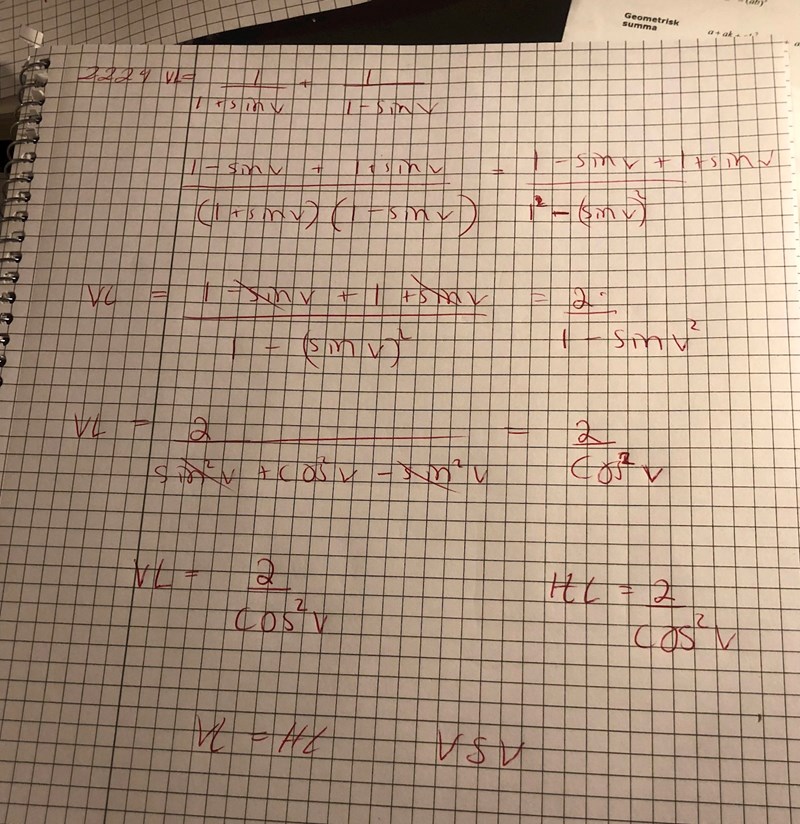 Geometrisk
summa
2224 VL = 1/(1+sinv) + 1/(1-sinv)
(1-sinv + 1+sinv)/((1+sinv)(1-sinv)) = (1-sinv+1+sinv)/(1²-(sinv)²)
VL = (1-sinv + 1+sinv)/(1-(sinv)²) = 2/(1-sinv²)
VL = 2/(sin²v + cos²v - sin²v) = 2/(cos²v)
VL = 2/(cos²v) HL = 2/(cos²v)
VL = HL VSV